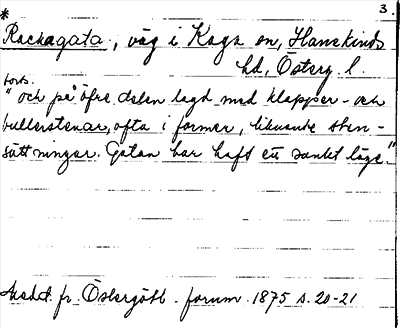 3.
* Rackagata, väg i Kaga sn, Hanekinds
hd, Österg. l.
forts.
" och på öfre delen lagd med klapper- och
bullerstenar, ofta i former, liknande sten-
sättningar. Gatan har haft ett sankt läge."
fr. Östergötl. forum. 1875 s. 20-21